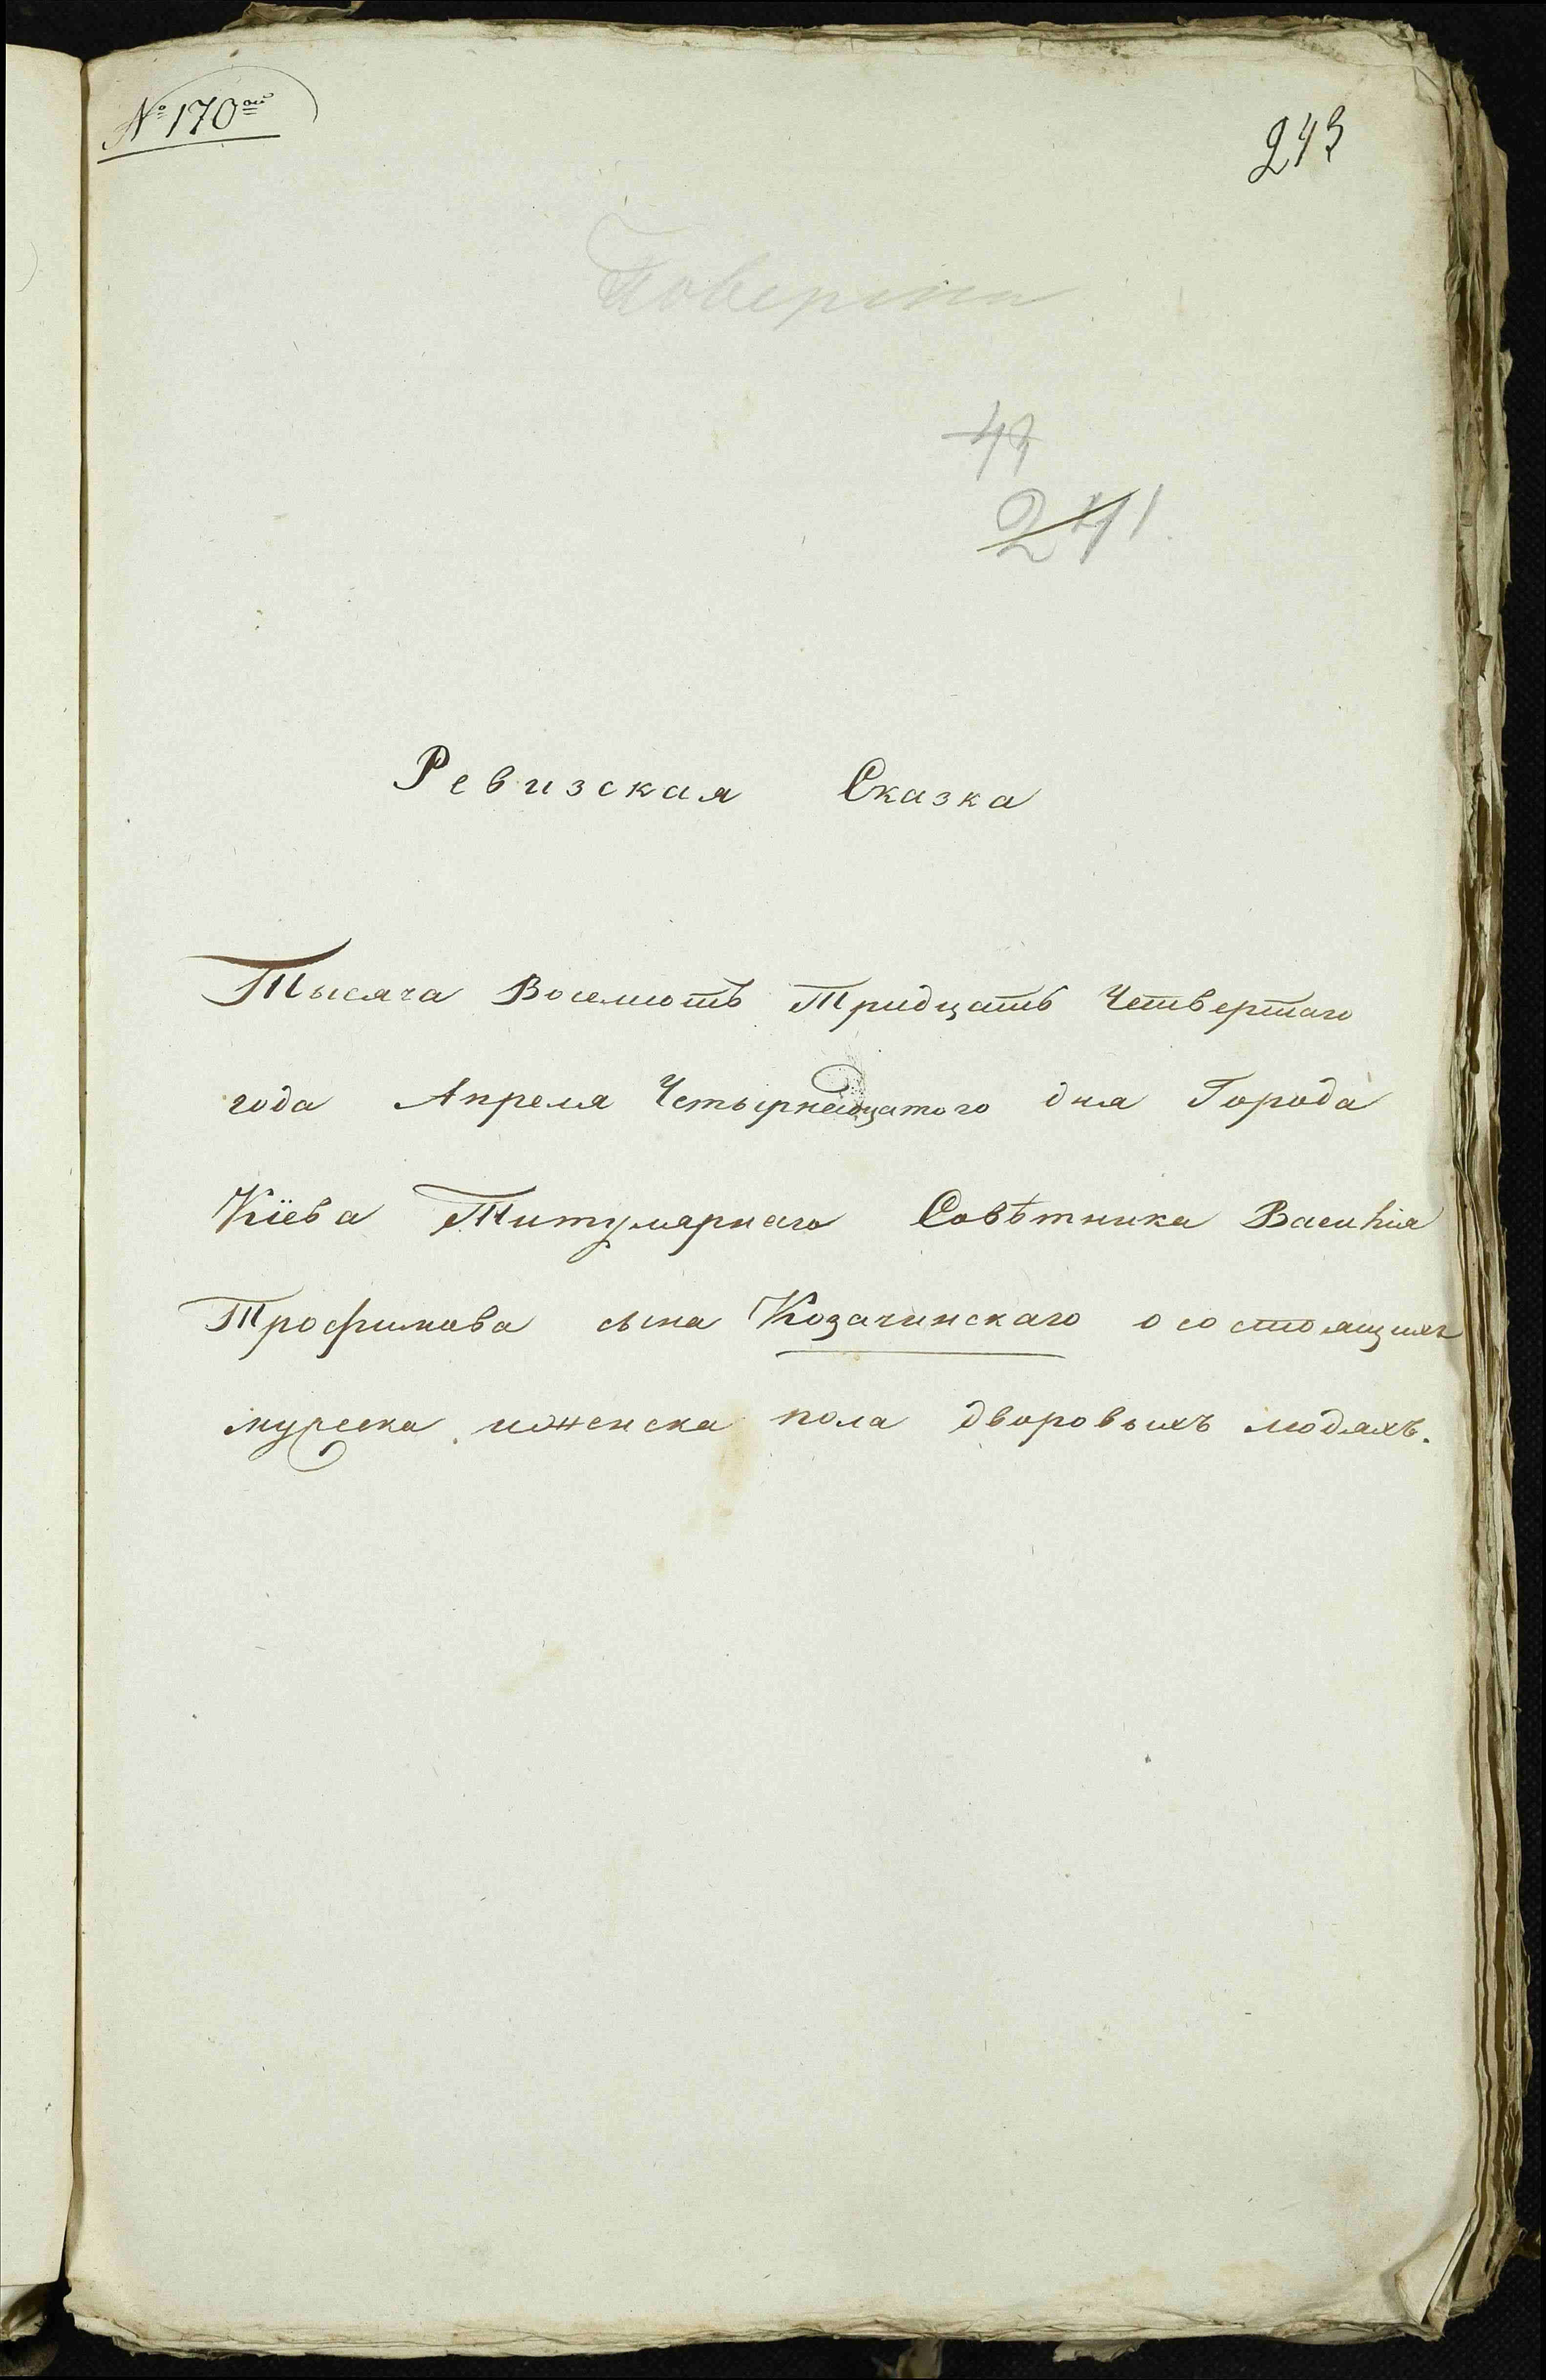 № 170ой
243
241
Ревизская Сказка
Тысяча Восемсотъ Тридцать Четвертаго
года Апреля Четырнадцатого дня Города
Кіева Титулярнаго Совѣтника Василія
Трофимова сына Козачинскаго о состоящихъ
мужеска и женска пола дворовыхъ людяхъ.